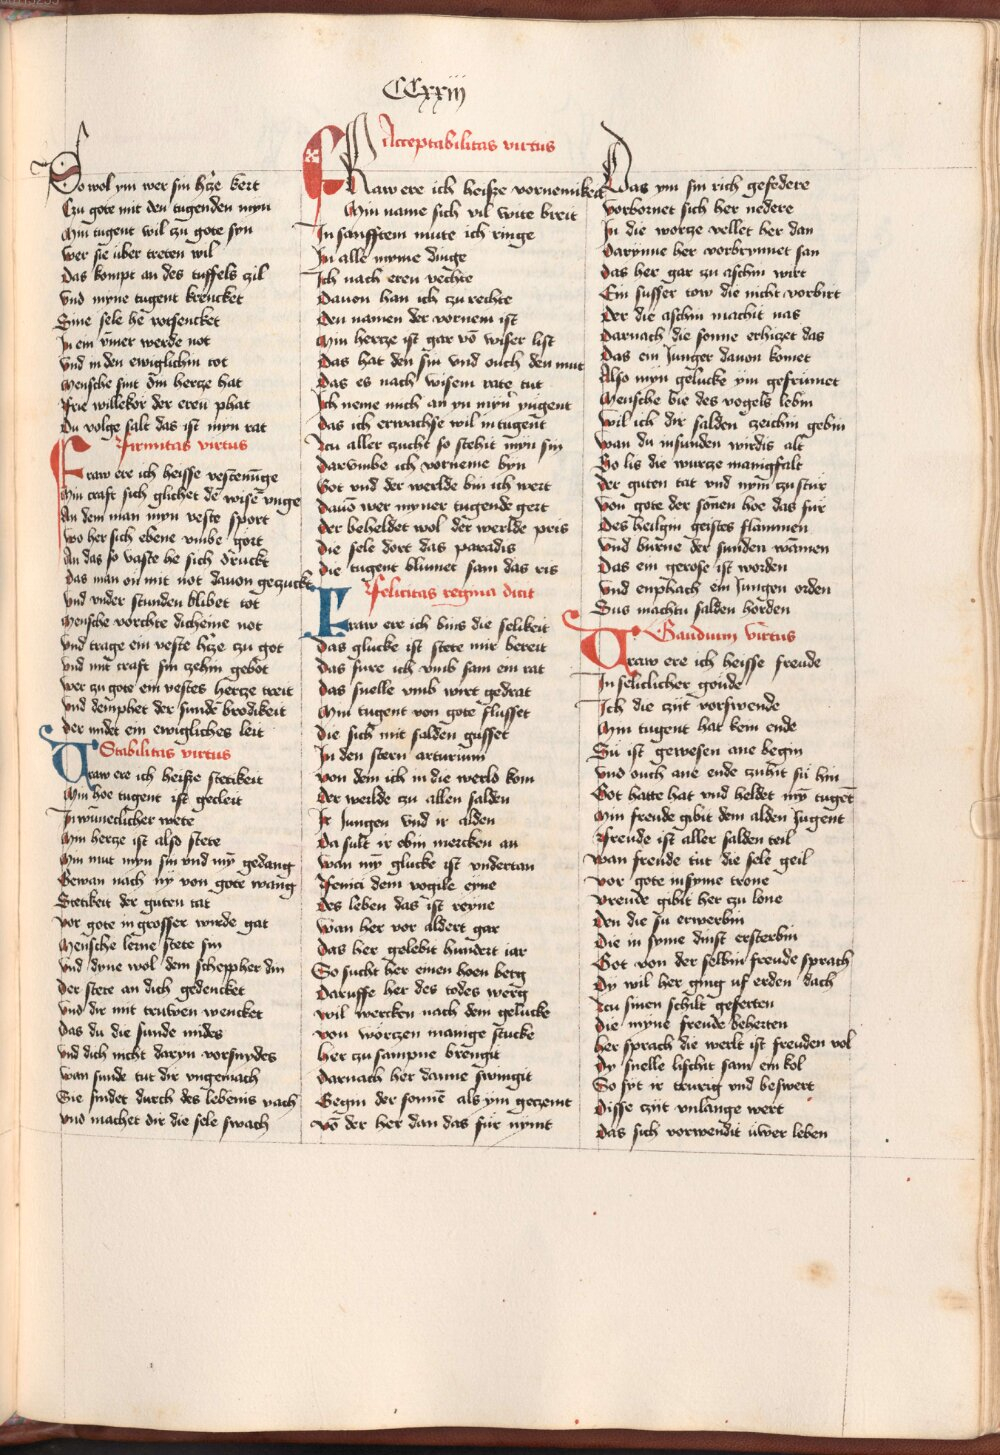 CCxxiij
So wol ym wer sin hrꝛe kert
Czu gote mit den tugenden myn
Min tugent wil zu gote syn
Wer sie uber treten wil
Das kompt an des tuffels zil
Und myne tugent krencket
Sine sele he vorsencket
In em ymer werde not
Und in den ewiglichin tot
Mensche sint din hertze hat
Frie willekor der eren phat
Du volge salt das ist myn rat
Firmitas virtus
Fraw ere ich heisse vestenu̅ge
Min craft sich glichet de wise̅ vnge
An dem man myn veste sport
Wo her sich ebene vmbe gort
An das so vaste he sich druckt
Das man on mit not dauon gezuckt
Und vnder stunden blibet tot
Mensche vorchte dicheine not
Und trage ein veste hrꝛe zu got
Und mit craft sin zehin gebot
Wer zu gote ein vestes hertze treit
Und dempfet der sunde brodikeit
Der midet ein ewigliches leit
Stabilitas virtus
Fraw ere ich heisse stetikeit
Min hoe tugent ist gecleit
In wuneclicher wete
Min hertze ist also stete
Min mut myn sin vnd my̅ gedang
Gewan nach ny von gote wang
Stetikeit der guten tat
Vor gote in grosser wirde gat
Mensche lerne stete sin
Und dyne wol dem schepher din
Der stete an dich gedencket
Und dir mit truwen wencket
Das du die sunde mides
Und dich nicht daryn vorsnydes
Wan sunde tut dir vngemach
Sie findet durch des lebenis vach
Und machet dir die sele swach
Acceptabilitas virtus
Fraw ere ich heisse vornemikeit
Min name sich vil wite breit
In sanfftem mute ich ringe
In alle myme dinge
Ich nach eren vechte
Dauon han ich zu rechte
Den namen der vornem ist
Min hertze ist gar vo̅ wiser list
Das hat den sin vnd ouch den mut
Das es nach wisem rate tut
Ich neme mich an yn myn͛ yugent
Das ich erwachse wil in tugent
Zcu aller zucht so stehit myn sin
Darvmbe ich vorneme byn
Got vnd der werlde bin ich wert
Dauo̅ wer myner tugende gert
Der beheldet wol der werlde pris
Die sele dort das paradis
Die tugent blumet sam das ris
Felicitas regina dicit
Fraw ere ich bins die selikeit
Das glucke ist stete mir bereit
Das fure ich vmb sam ein rat
Das snelle vmb wirt gedrat
Min tugent von gote flusset
Die sich mit salden gusset
In den stern arturium
Von dem ich in die werld kom
Der werlde zu allen salden
Ir Jungen vnd ir alden
Da sult ir ebin mercken an
Wan my̅ glucke ist vndertan
Fenici dem vogile eyne
Des leben das ist reyne
Wan her vor aldert gar
Das her gelebit hundert iar
So sucht her einen hoen berg
Daruffe her des todes werg
Wil wercken nach dem gelucke
Von wortzen manige stucke
Her zu sampne brengit
Darnach her danne swingit
Gegin der sonne̅ als ym gezemt
Vo̅ der her dan das fur nymt
Das ym sin rich gefedere
Vorbornet sich her nedere
In die wortze vellet her dan
Darynne her vorbrynnet san
Das her gar zu aschin wirt
Ein susser tow die nicht vorbirt
Der die aschin machit nas
Darnach die sonne erhizet das
Das ein Junger dauon komet
Also myn gelucke ym gefrumet
Mensche bie des vogels lebin
Wil ich dir salden zeichin gebin
Wan du in sunden wirdis alt
So lis die wurtze manigfalt
Der guten tat vnd nym zu stur
Von gote der so̅nen hoe das fur
Des heilgin geistes flammen
Und burne der sunden wa̅men
Das ein gerose ist worden
Und enphach ein Jungen orden
Sus machtu salden horden
Gaudium virtus
Fraw ere ich heisse freude
In seliclicher goude
Ich die zijt vorswende
Myn tugent hat kein ende
Sii ist gewesen ane begin
Und ouch ane ende zuhit sii hin
Got hatte hat vnd heldet my̅ tuget
Min freude gibit dem alden Jugent
Freude ist aller salden teil
Wan freude tut die sele geil
Vor gote in syme trone
Vreude gibit her zu lone
Den die su erwerbin
Die in syme dinst ersterbin
Got von der selbin freude sprach
Dy wil her ging uf erden dach
Zcu sinen schilt geferten
Die myne freude beherten
Her sprach die werlt ist freuden vol
Dy snelle lischit sam ein kol
So syt ir trurig vnd beswert
Disse zijt vnlange wert
Das sich vorwendit uwer leben